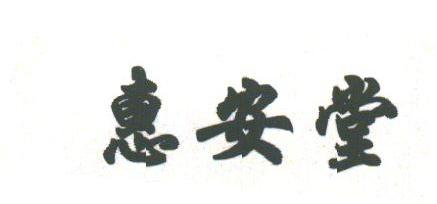 惠安堂